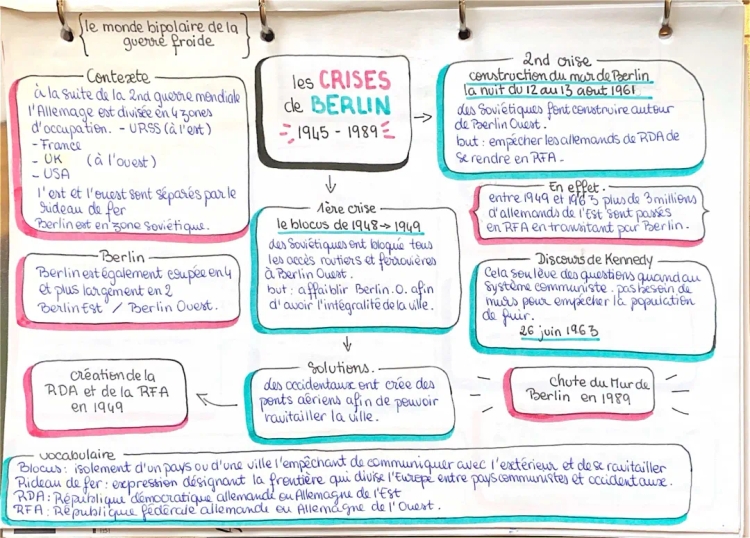 le monde bipolaire de la
guerre froide
Contexte
à la suite de la 2nd guerre mondiale
l'Allemage est divisée en 4 zones
d'occupation. - URSS (à l'est)
- France
- UK (à l'ouest)
- USA
l'est et l'ouest sont séparés par le
rideau de fer
Berlin est en zone soviétique.
Berlin
Berlin est également coupée en 4
et plus largement en 2
Berlin Est / Berlin Ouest.
création de la
RDA et de la RFA
en 1949
les CRISES
de BERLIN
1945 - 1989
1ère crise
le blocus de 1948 → 1949
des Soviétiques ont bloqué tous
les accès routiers et ferrovières
à Berlin Ouest.
but : affaiblir Berlin.O. afin
d'avoir l'intégralité de la ville.
Solutions.
des occidentaux ont crée des
ponts aériens afin de pouvoir
ravitailler la ville.
2nd crise
construction du mur de Berlin
la nuit du 12 au 13 aout 1961
des Soviétiques font construire autour
de Berlin Ouest.
but : empêcher les allemands de RDA de
se rendre en RFA.
En effet.
entre 1949 et 1963 plus de 3 millions
d'allemands de l'Est sont passés
en RFA en transitant par Berlin.
Discours de Kennedy
Cela soulève des questions quand au
système communiste. pas besoin de
murs pour empêcher la population
de fuir.
26 juin 1963
chute du Mur de
Berlin en 1989
vocabulaire
Blocus : isolement d'un pays ou d'une ville l'empêchant de communiquer avec l'extérieur et de se ravitailler
Rideau de fer : expression désignant la frontière qui divise l'Europe entre pays communistes et occidentaux.
RDA : République démocratique allemande ou Allemagne de l'Est
RFA : République fédérale allemande ou Allemagne de l'Ouest.